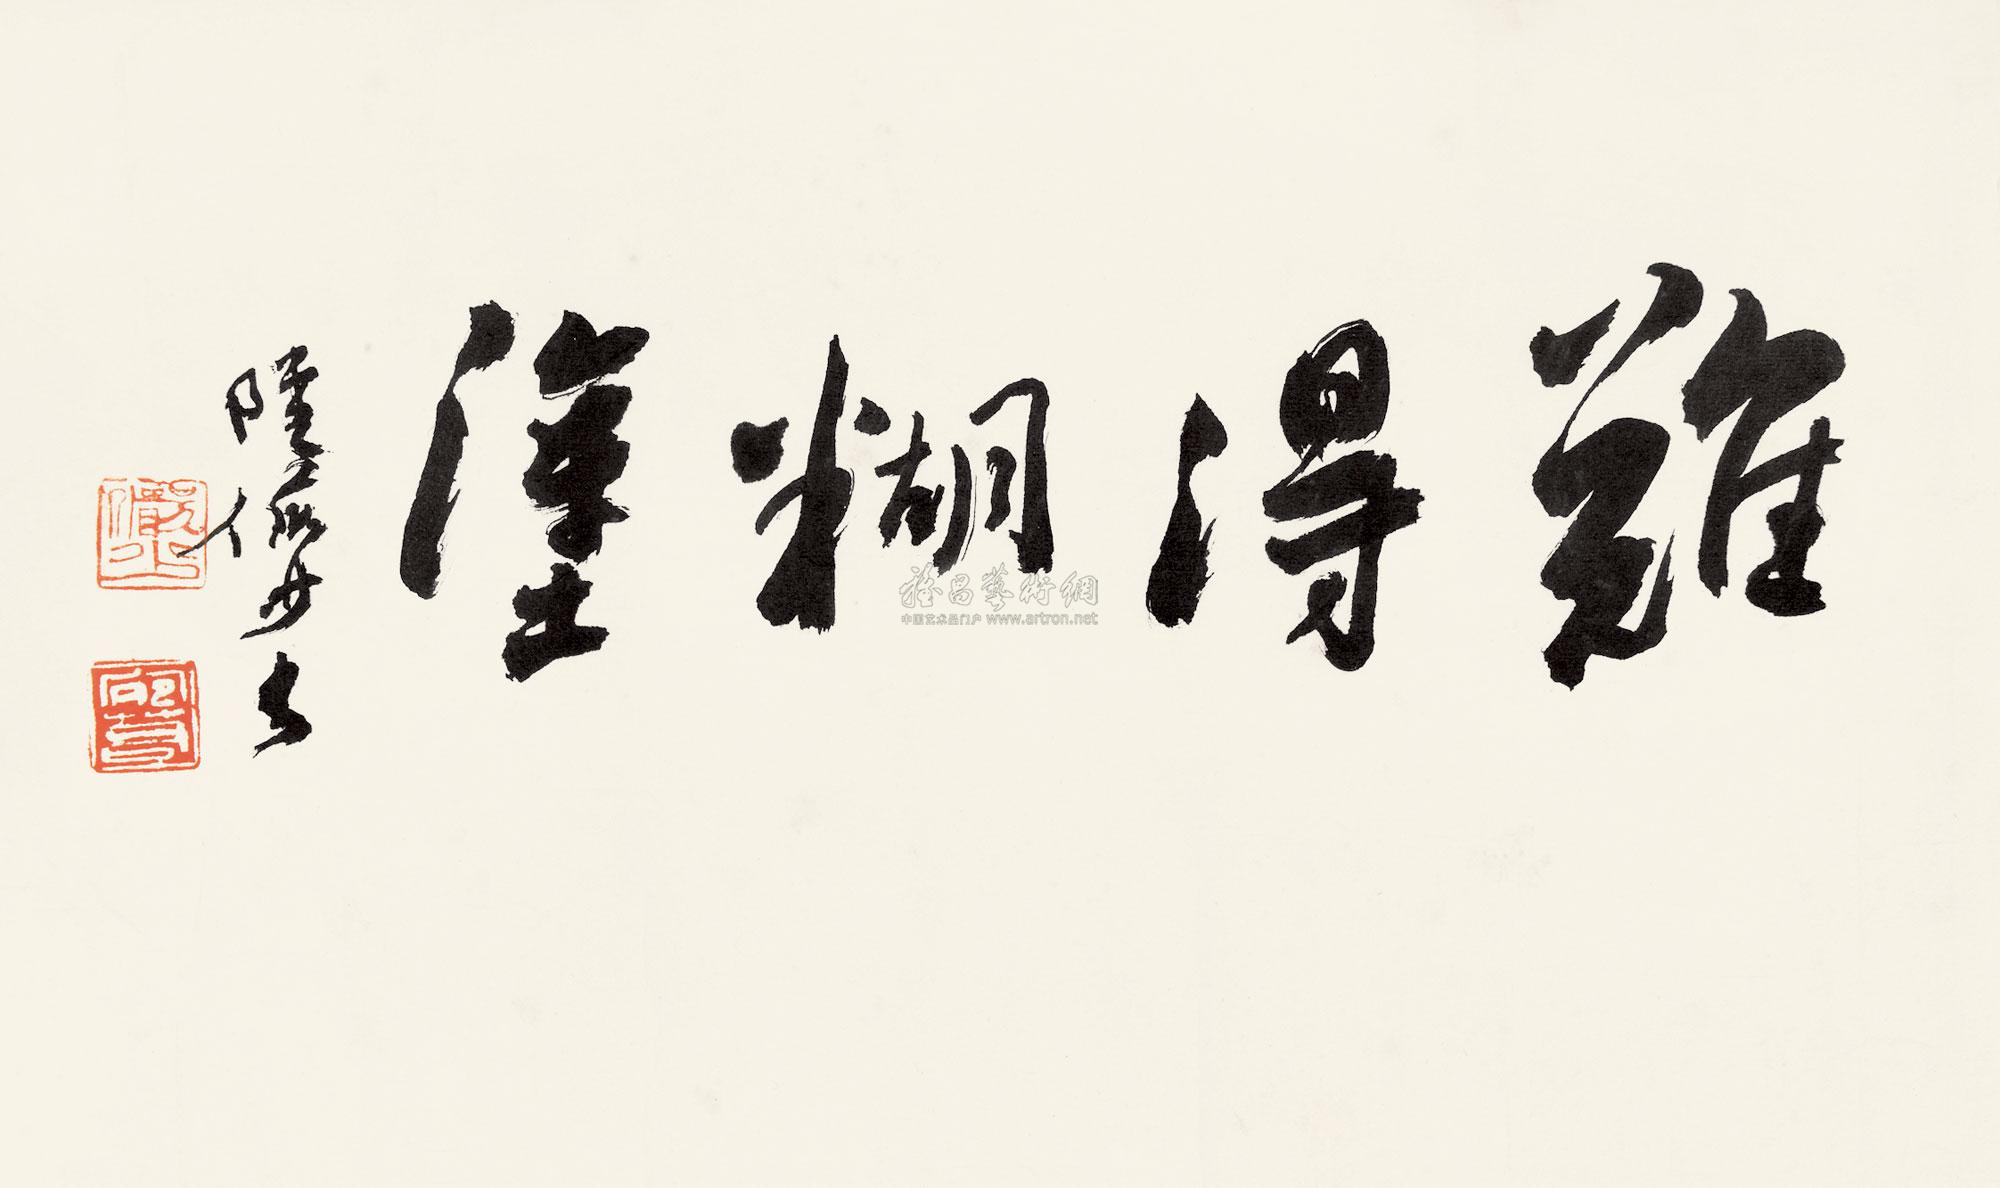 難得糊塗
陸儼少書
儼少
宛若
雅昌藝術網
中国艺术品门户 www.artron.net